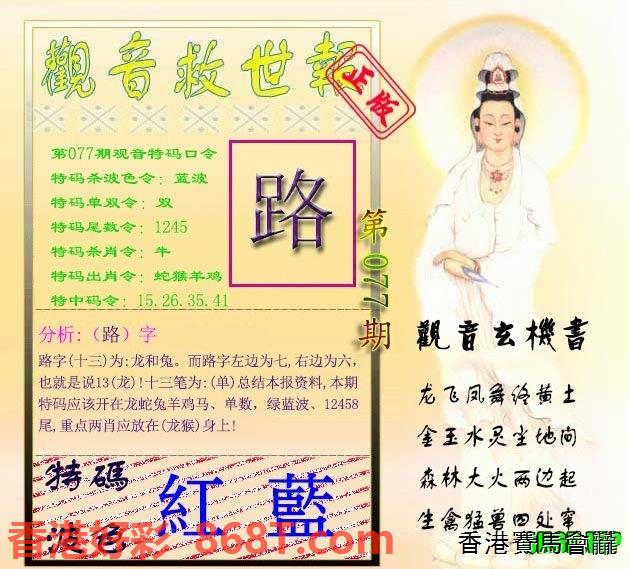 觀音救世報
正版
第077期观音特码口令
特码杀波色令：蓝波
特码单双令：双
特码尾数令：1245
特码杀肖令：牛
特码出肖令：蛇猴羊鸡
特中码令：15.26.35.41
路
第077期
分析:（路）字
路字(十三)为:龙和兔。而路字左边为七,右边为六,
也就是说13(龙)!十三笔为:(单)总结本报资料,本期
特码应该开在龙蛇兔羊鸡马、单数，绿蓝波、12458
尾,重点两肖应放在(龙猴)身上!
觀音玄機書
龙飞凤舞终黄土
金玉水灵尘地间
森林大火两边起
生禽猛兽四处窜
特碼
波色
紅 藍
香港好彩 8687.com
香港賽馬會